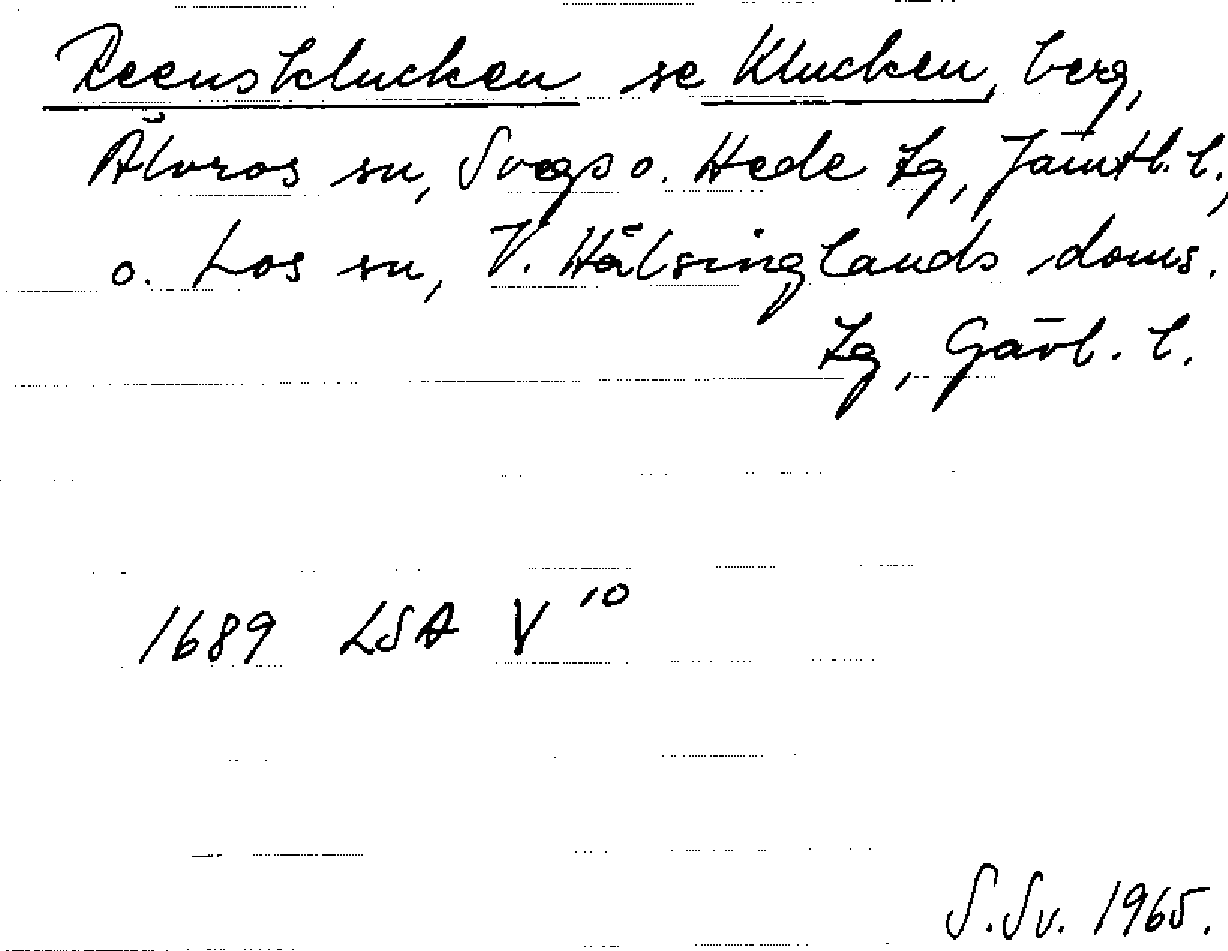 Reensklucken se Klucken, berg,
Älvros sn, Svegs o. Hede tg, Jämtl. l.,
o. Los sn, V. Hälsinglands doms.
tg, Gävl. l.
1689 LSA V 10
S. Sv. 1965.